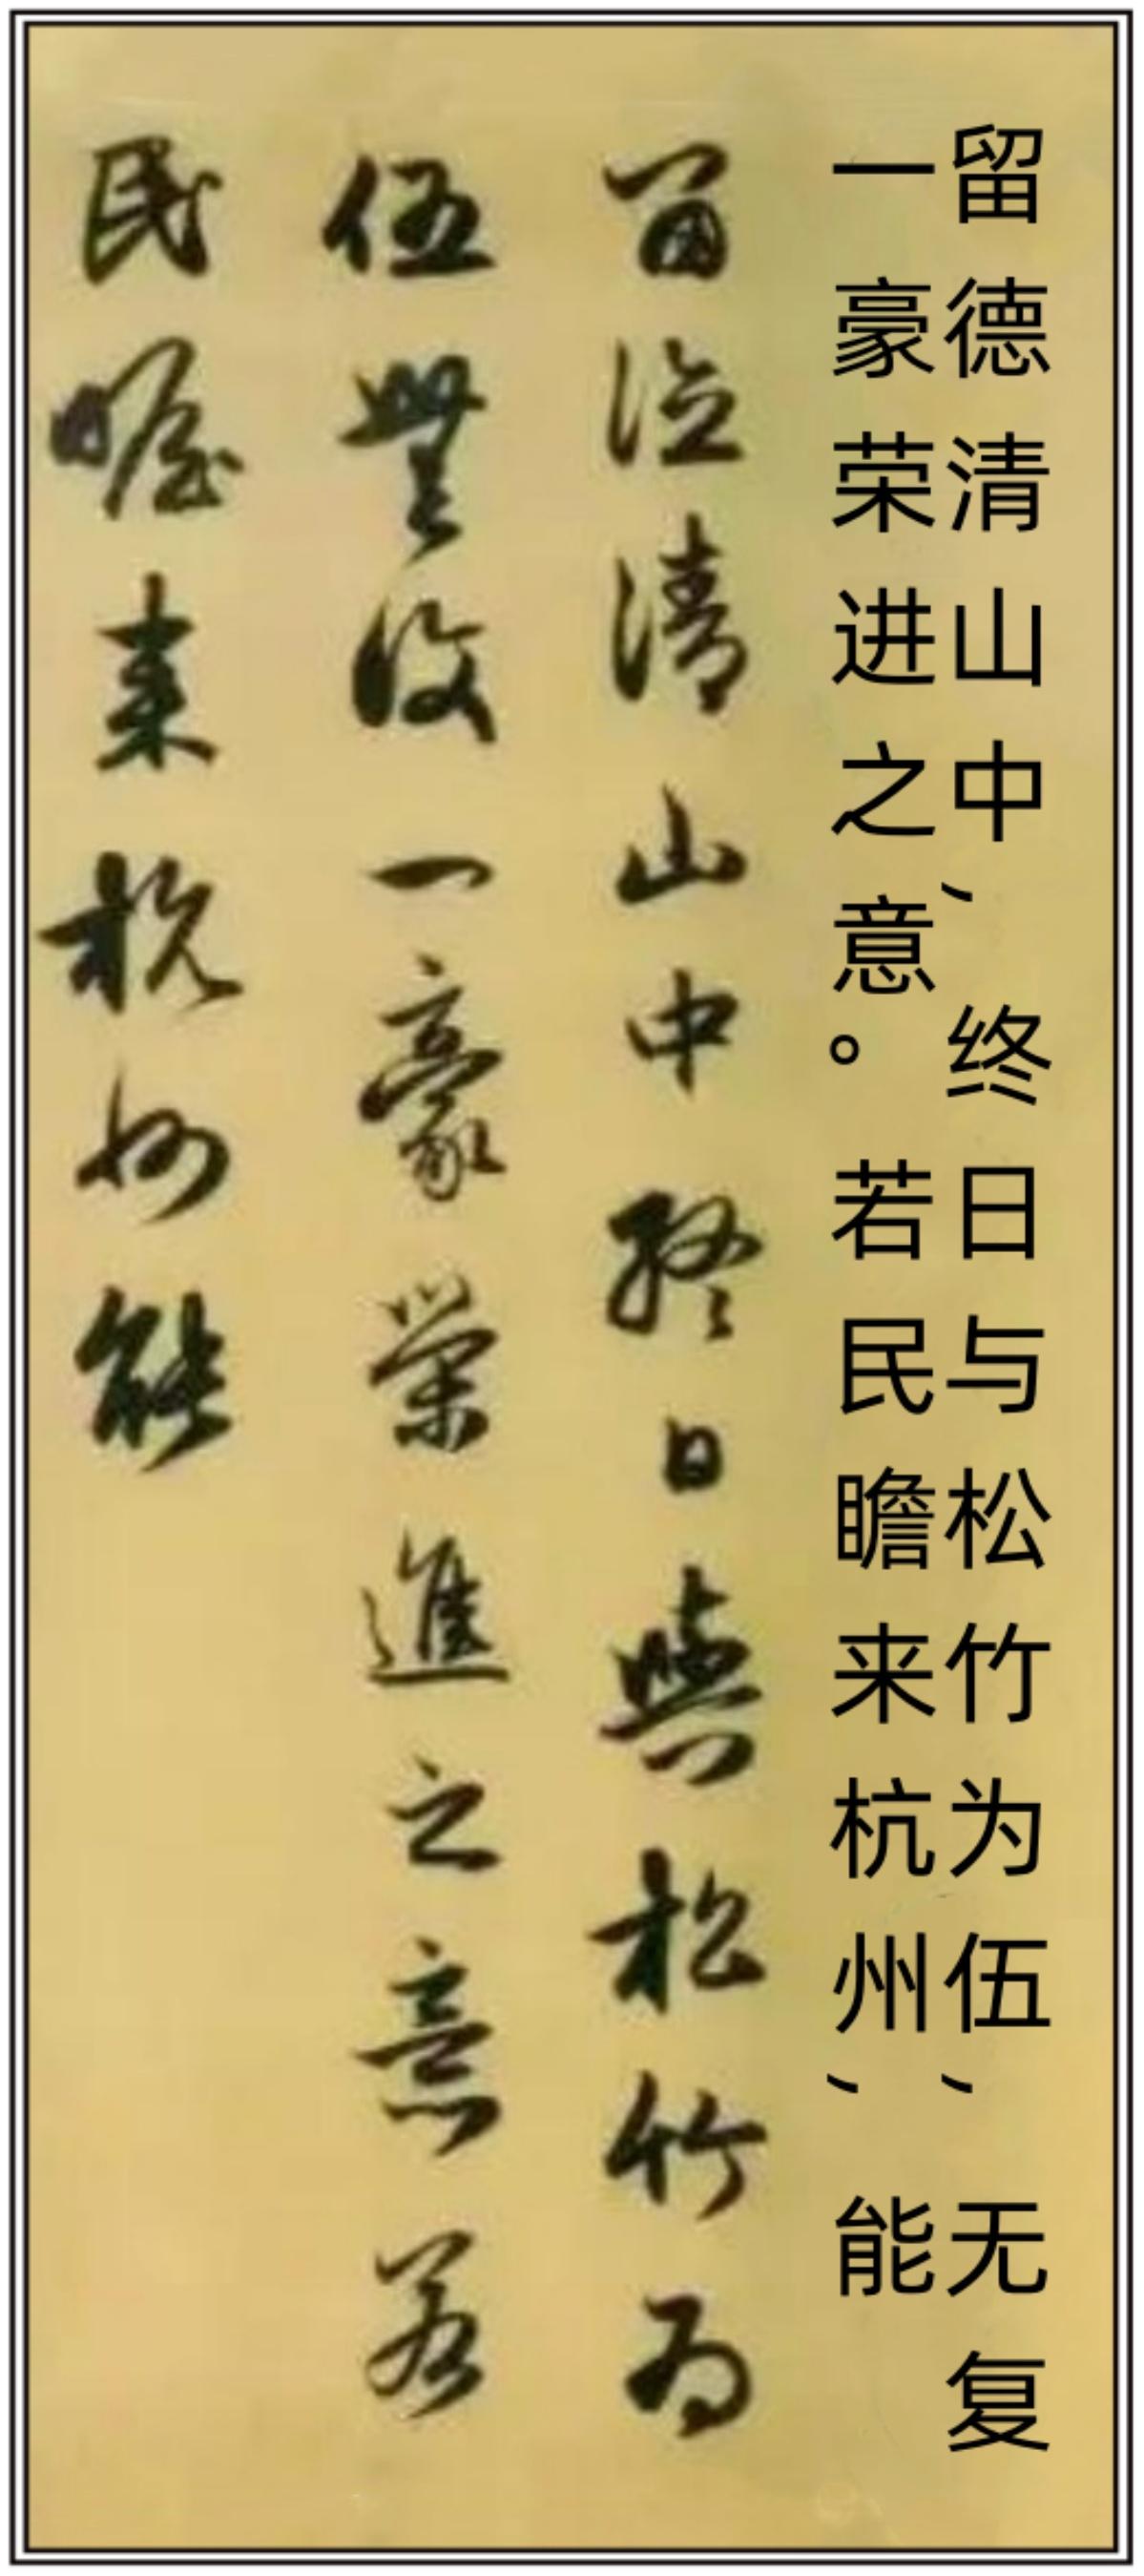 留德清山中，终日与松竹为伍，无复
一豪荣进之意。若民瞻来杭州，能
留德清山中終日與松竹為
伍無復一豪榮進之意若
民瞻来杭州能